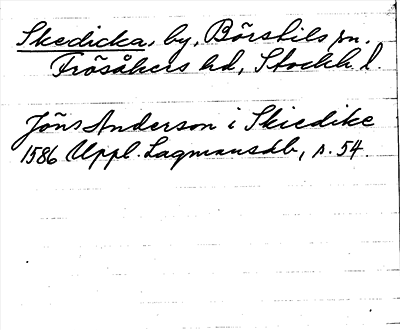 Skedicka, by, Börstils sn.
Frösåkers hd, Stockh. l.
Jöns Anderson i Skiedike
1586 Uppl. Lagmansdb, s. 54.